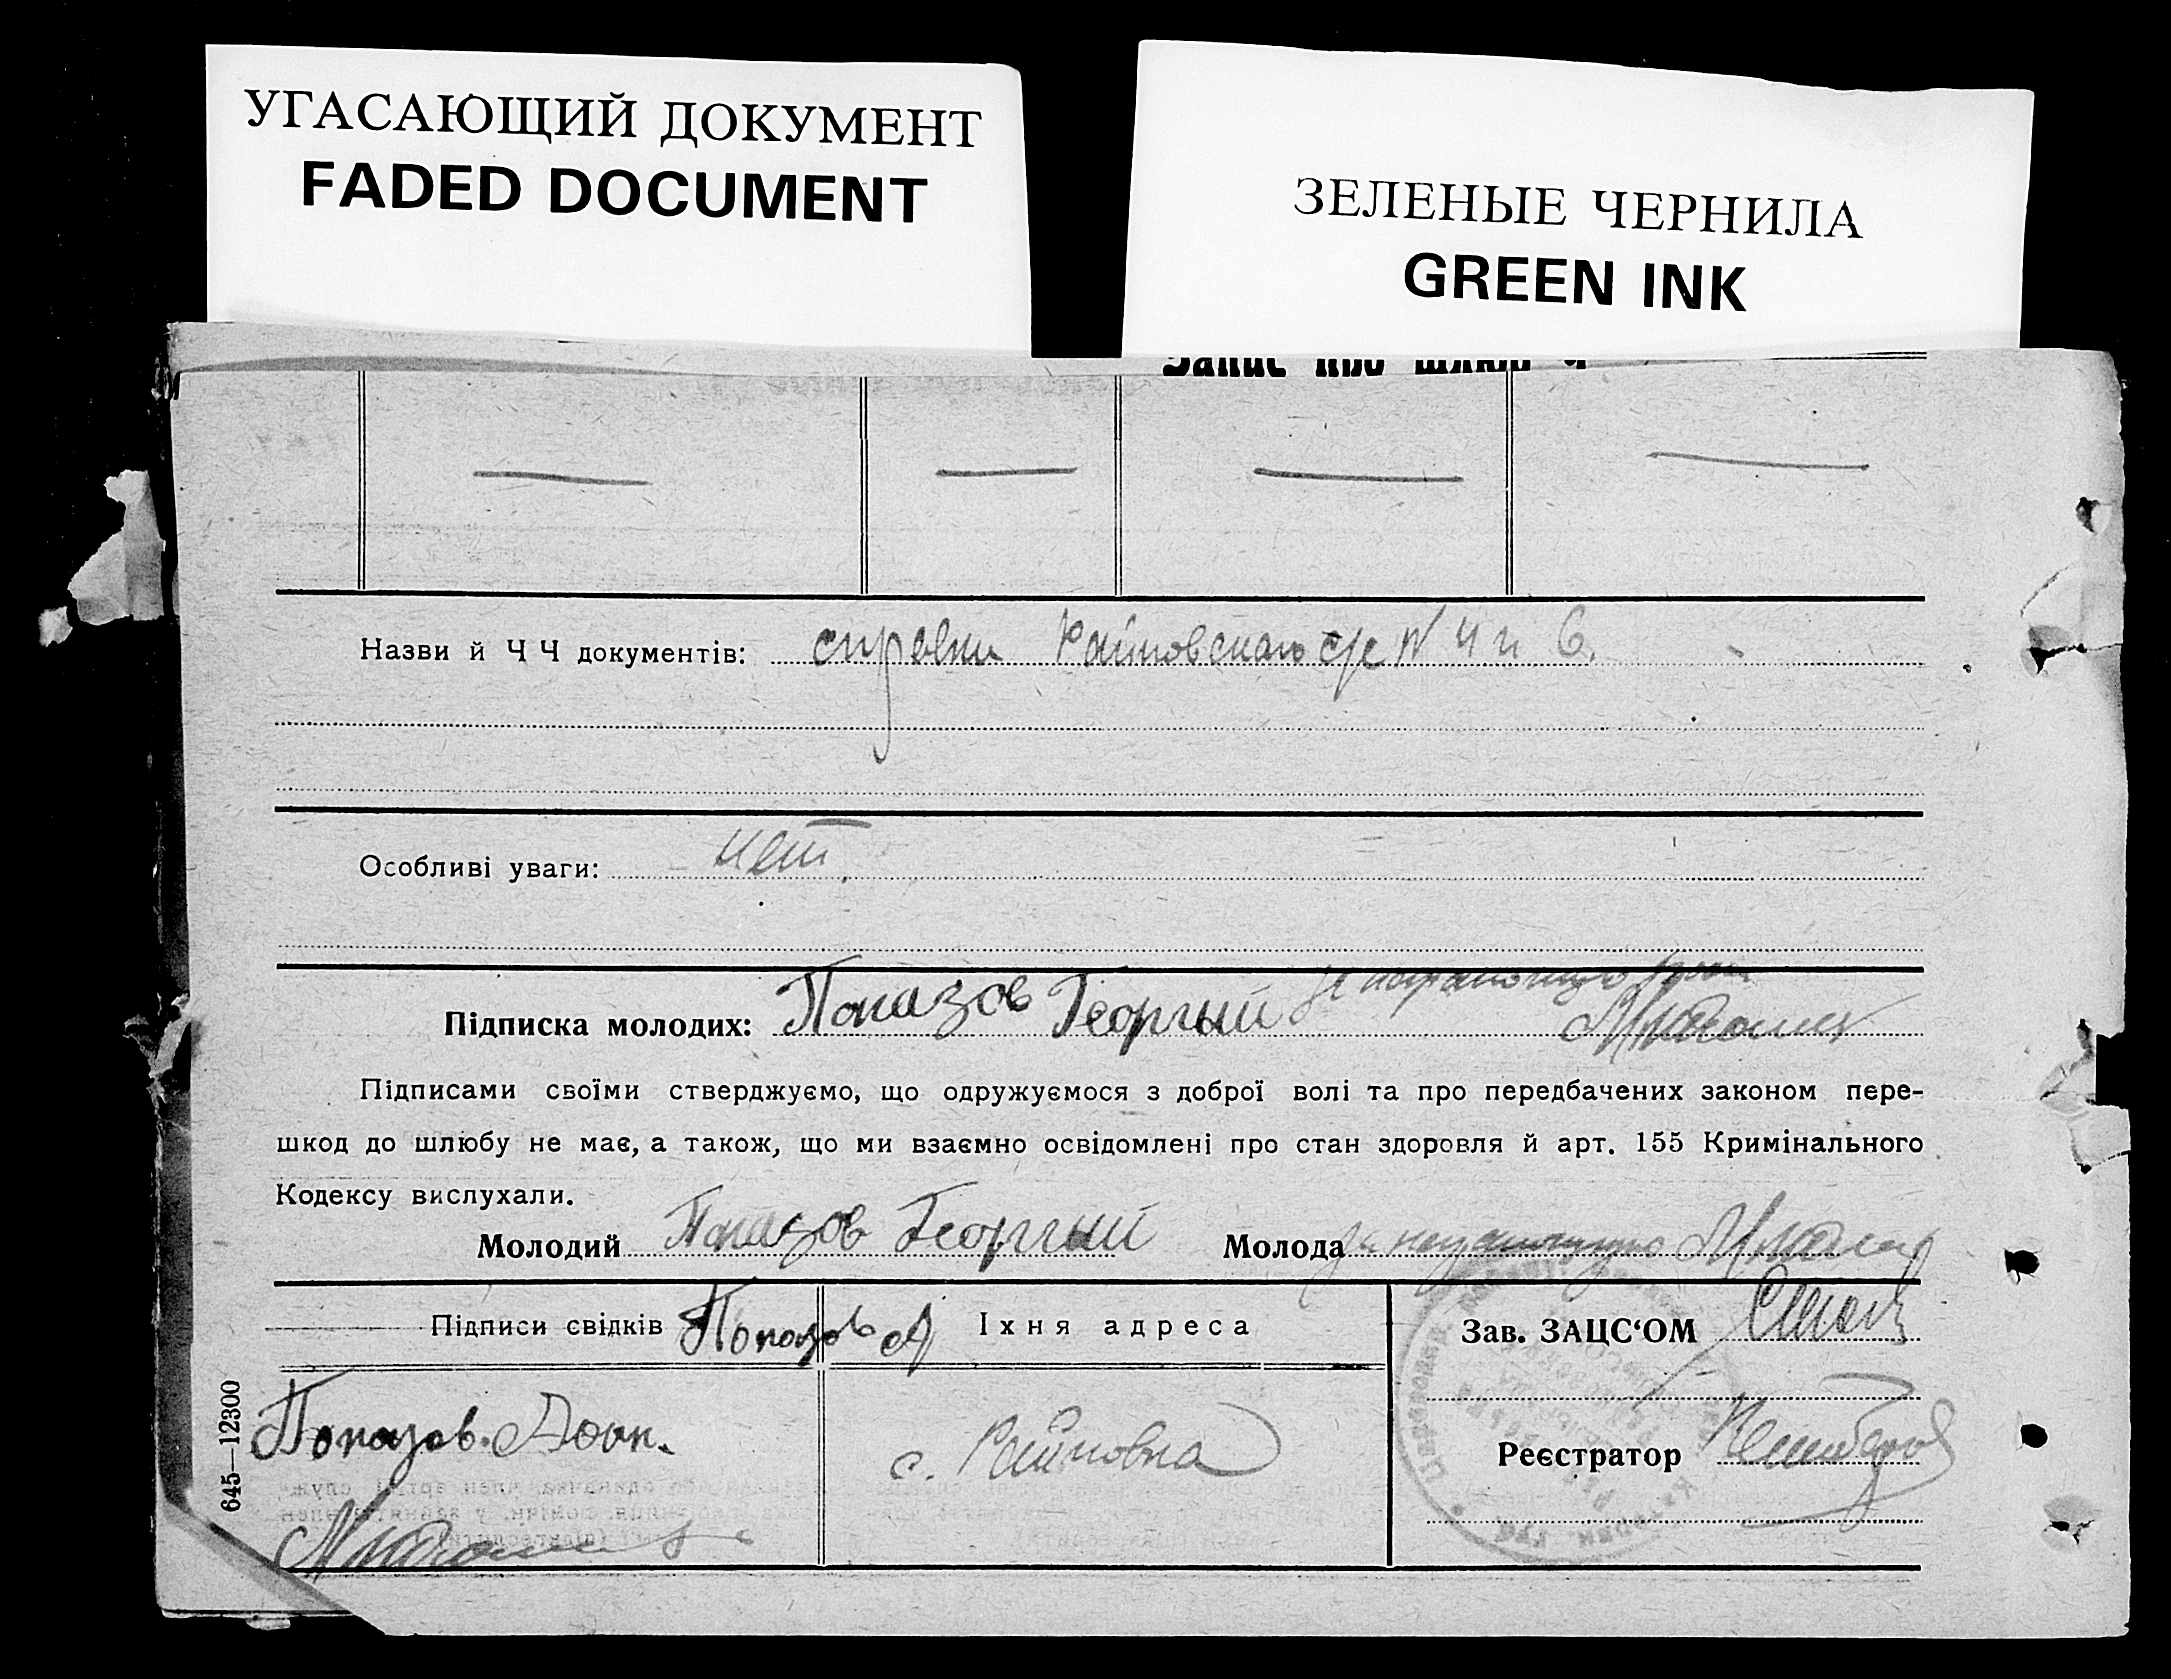 УГАСАЮЩИЙ ДОКУМЕНТ
FADED DOCUMENT
ЗЕЛЕНЫЕ ЧЕРНИЛА
GREEN INK
Запис про шлюб Ч
Назви й Ч Ч документів: справки Райновского с/с N 4 и 6.
Особливі уваги: нет.
Підписка молодих: Попазов Георгий за неграмотную
Підписами своїми стверджуємо, що одружуємося з доброї волі та про передбачених законом пере-
шкод до шлюбу не має, а також, що ми взаємно освідомлені про стан здоровля й арт. 155 Кримінального
Кодексу вислухали.
Молодий Попазов Георгий Молода за неграмотную
Підписи свідків Попазов А
Іхня адреса
Зав. ЗАЦС‘ОМ
Попазов.
с. Райновка
Реєстратор
645—12300